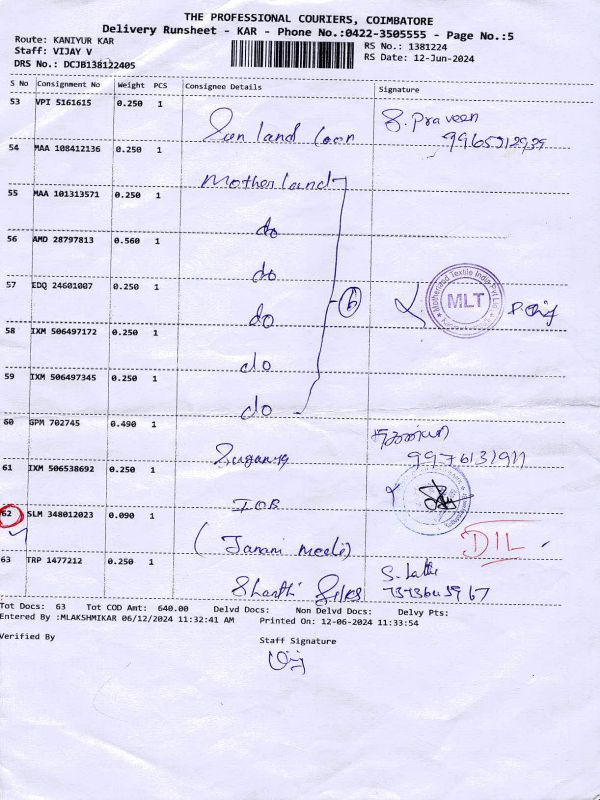 THE PROFESSIONAL COURIERS, COIMBATORE
Delivery Runsheet - KAR - Phone No.:0422-3505555 - Page No.:5
Route: KANIYUR KAR
RS No.: 1381224
Staff: VIJAY V
RS Date: 12-Jun-2024
DRS No.: DCJB138122405
S No Consignment No Weight PCS Consignee Details Signature
53 VPI 5161615 0.250 1
Sun land
S. Praveen
54 MAA 108412136 0.250 1
Motherland
55 MAA 101313571 0.250 1
do
56 AMD 28797813 0.560 1
do
57 EDQ 24601007 0.250 1
do
6
MLT
58 IXM 506497172 0.250 1
do
59 IXM 506497345 0.250 1
do
60 GPM 702745 0.490 1
9976131911
61 IXM 506538692 0.250 1
IOB
62 SLM 348012023 0.090 1
(Janani
DIL
63 TRP 1477212 0.250 1
Shanthi
Tot Docs: 63 Tot COD Amt: 640.00 Delvd Docs: Non Delvd Docs: Delvy Pts:
Entered By :MLAKSHMIKAR 06/12/2024 11:32:41 AM Printed On: 12-06-2024 11:33:54
Verified By Staff Signature